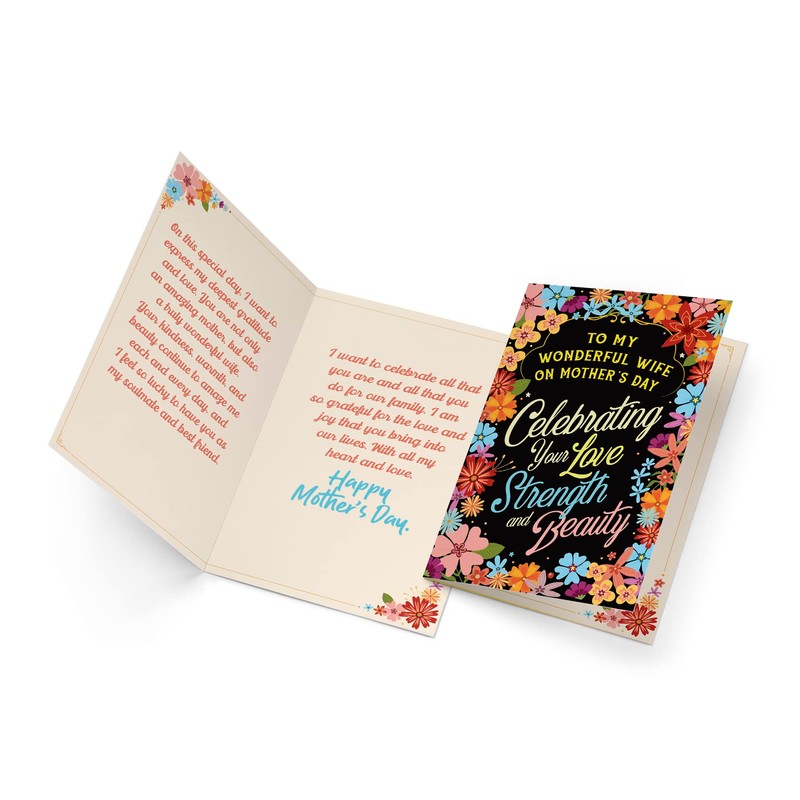 On this special day, I want to
express my deepest gratitude
and love. You are not only
an amazing mother, but also
a truly wonderful wife.
Your kindness, warmth, and
beauty continue to amaze me
each and every day, and
I feel so lucky to have you as
my soulmate and best friend.
I want to celebrate all that
you are and all that you
do for our family. I am
so grateful for the love and
joy that you bring into
our lives. With all my
heart and love,
Happy
Mother's Day.
TO MY
WONDERFUL WIFE
ON MOTHER'S DAY
Celebrating
Your Love
Strength
and Beauty